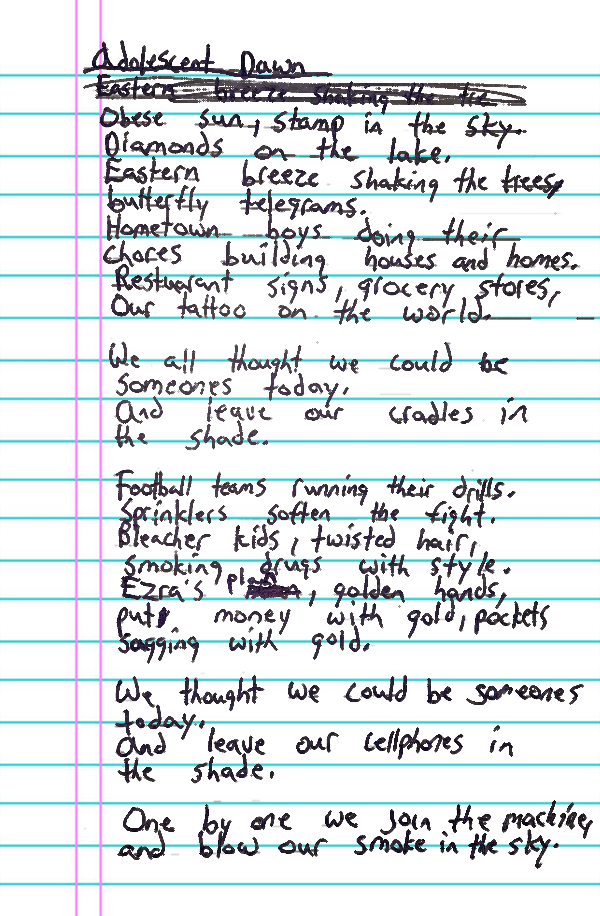 Adolescent Dawn
Eastern breeze shaking the tre
Obese sun, stamp in the sky.
Diamonds on the lake.
Eastern breeze shaking the trees,
butterfly telegrams.
Hometown boys doing their
chores building houses and homes.
Restuarant signs, grocery stores,
Our tattoo on the world.
We all thought we could be
someones today.
And leave our cradles in
the shade.
Football teams running their drills.
Sprinklers soften the fight.
Bleacher kids, twisted hair,
smoking drugs with style.
Ezra's plan, golden hands,
put money with gold, pockets
sagging with gold.
We thought we could be someones
today.
And leave our cellphones in
the shade.
One by one we join the machine,
and blow our smoke in the sky.